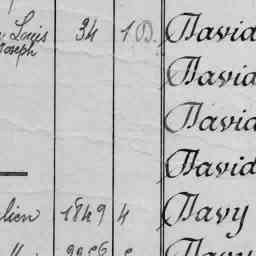 Louis 34 1 D. David
Joseph
David
David
David
lien 1849 4 Davy